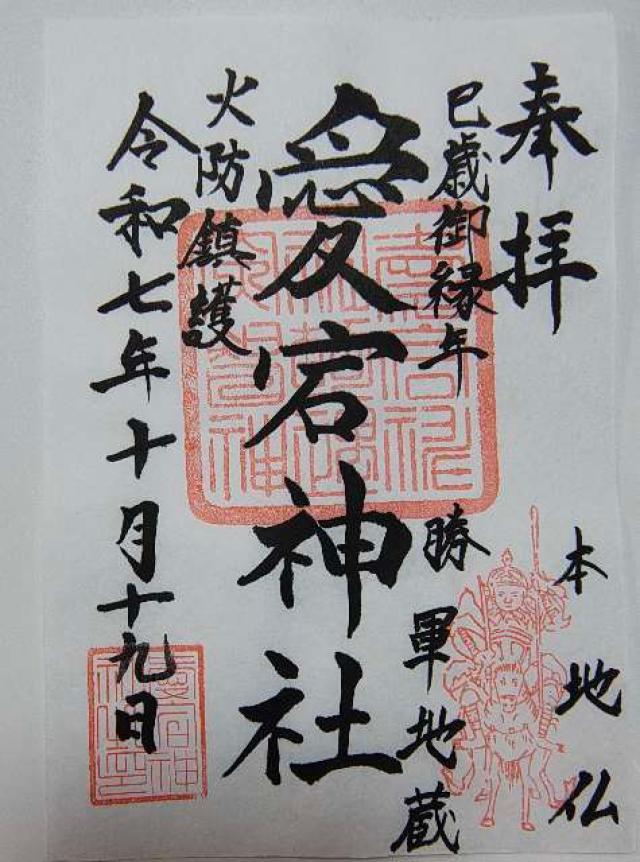 奉拝
本地仏
巳歳御縁年
勝軍地蔵
愛宕神社
火防鎮護
令和七年十月十九日